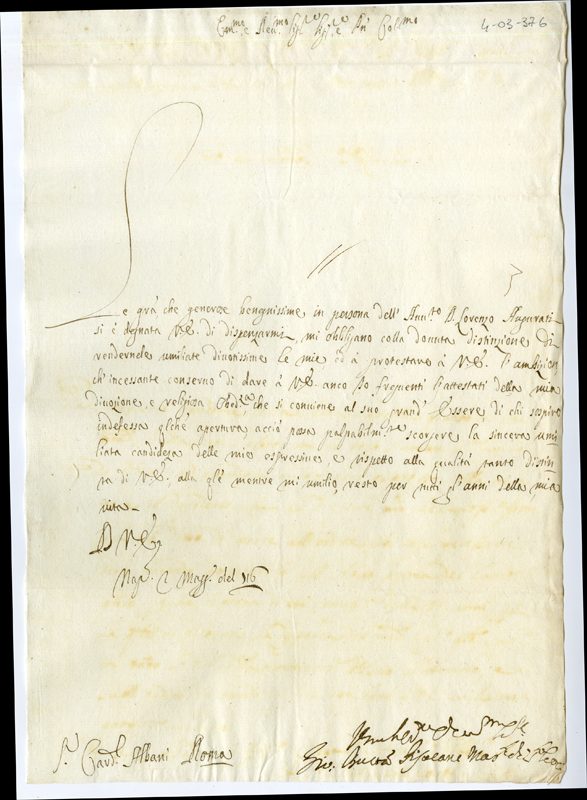 Em.mo e Rev.mo Sig.re Sig.re P.ne Col.mo
4-03-376
Le gr̃a che generoze benignissime in persona dell' Ann.to D. Lorenzo Augurati
si è degnata V.E. di dispenzarmi, mi obbligano colla dovuta distinzione di
rendernele umiliate divotissime le mie ed à protestare à V.E. l'ambizion
ch' incessante conservo di dare à V.E. anco frequenti l'attestati della mia
divozione, e religiosa che si conviene al suo grand' Essere di chi sospira
indefessa qlche apertura, acciò possa palpabilm.te scorgere la sincera umi
liata candidezza delle mie espressive e rispetto alla qualità tanto distin
ta di V.E. alla qle mentre mi umilio, resto per tutti gl'anni della mia
vita -
D V.E.
Nap. 2 Magg. del 116
S.r Card.l Albani Roma